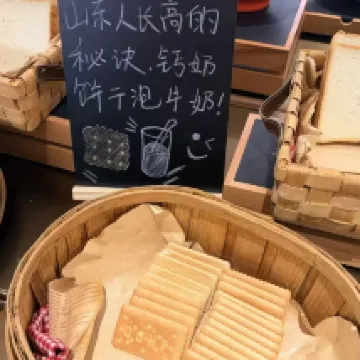 山东人长高的
秘诀、钙奶
饼干泡牛奶!